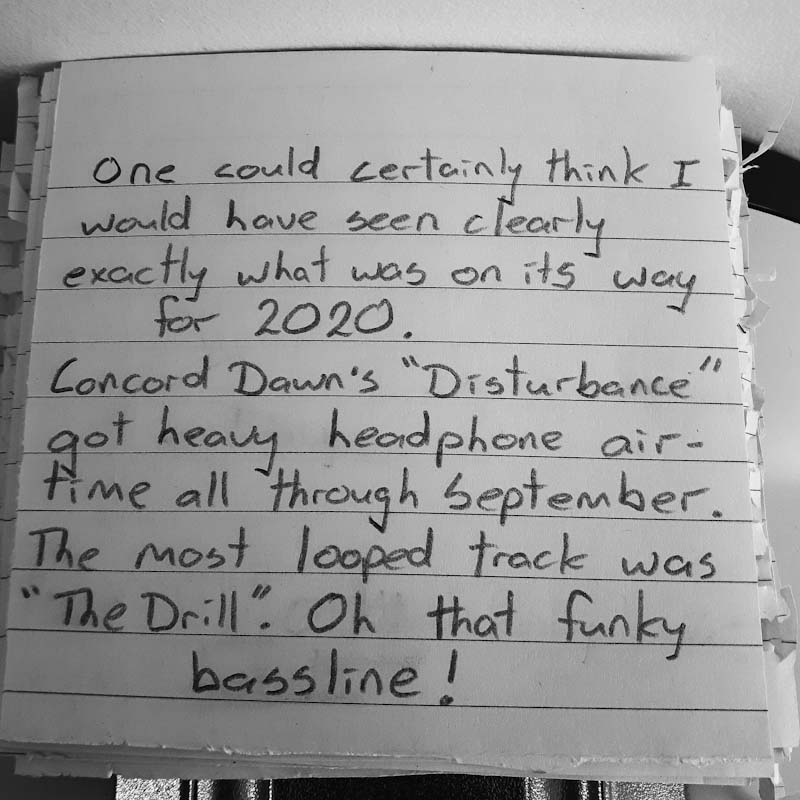 One could certainly think I
would have seen clearly
exactly what was on its way
for 2020.
Concord Dawn's "Disturbance"
got heavy headphone air-
time all through September.
The most looped track was
"The Drill". Oh that funky
bassline!